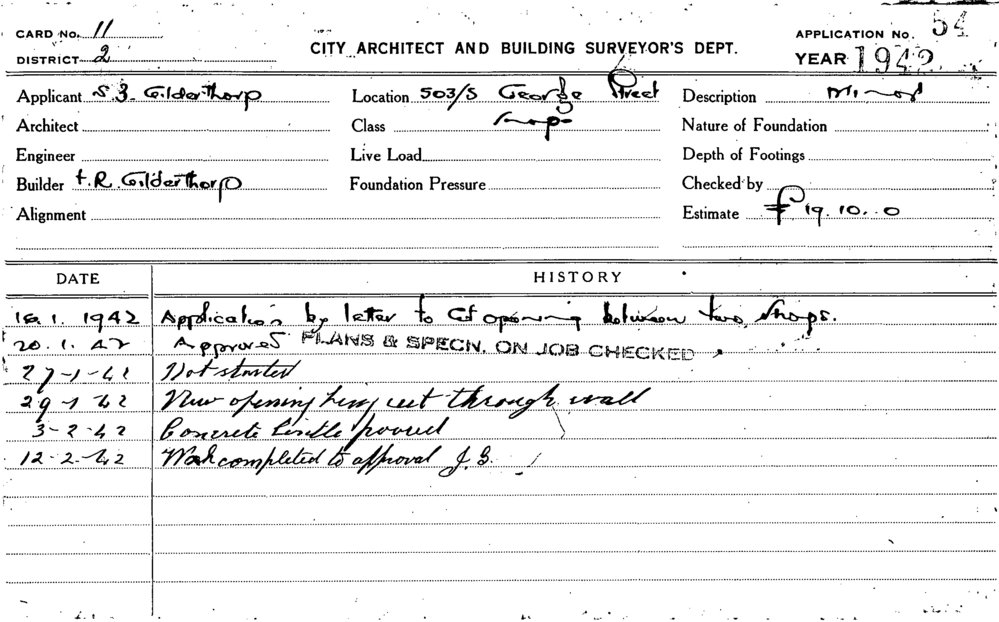 CARD No. 11
DISTRICT 2
CITY ARCHITECT AND BUILDING SURVEYOR'S DEPT.
APPLICATION No. 54
YEAR 1942
Applicant S. J. Gilderthorp Location 503/5 George Street Description Minor
Architect Class Shops Nature of Foundation
Engineer Live Load Depth of Footings
Builder F. R. Gilderthorp Foundation Pressure Checked by
Alignment Estimate £ 19. 10. 0
DATE HISTORY
1942 Application by letter to Cut opening between two shops.
20. 1. 42 Approved PLANS & SPECN. ON JOB CHECKED
27-1-42 Not started
29-1-42 New opening being cut through wall
3-2-42 Concrete poured
12-2-42 Work completed to approval